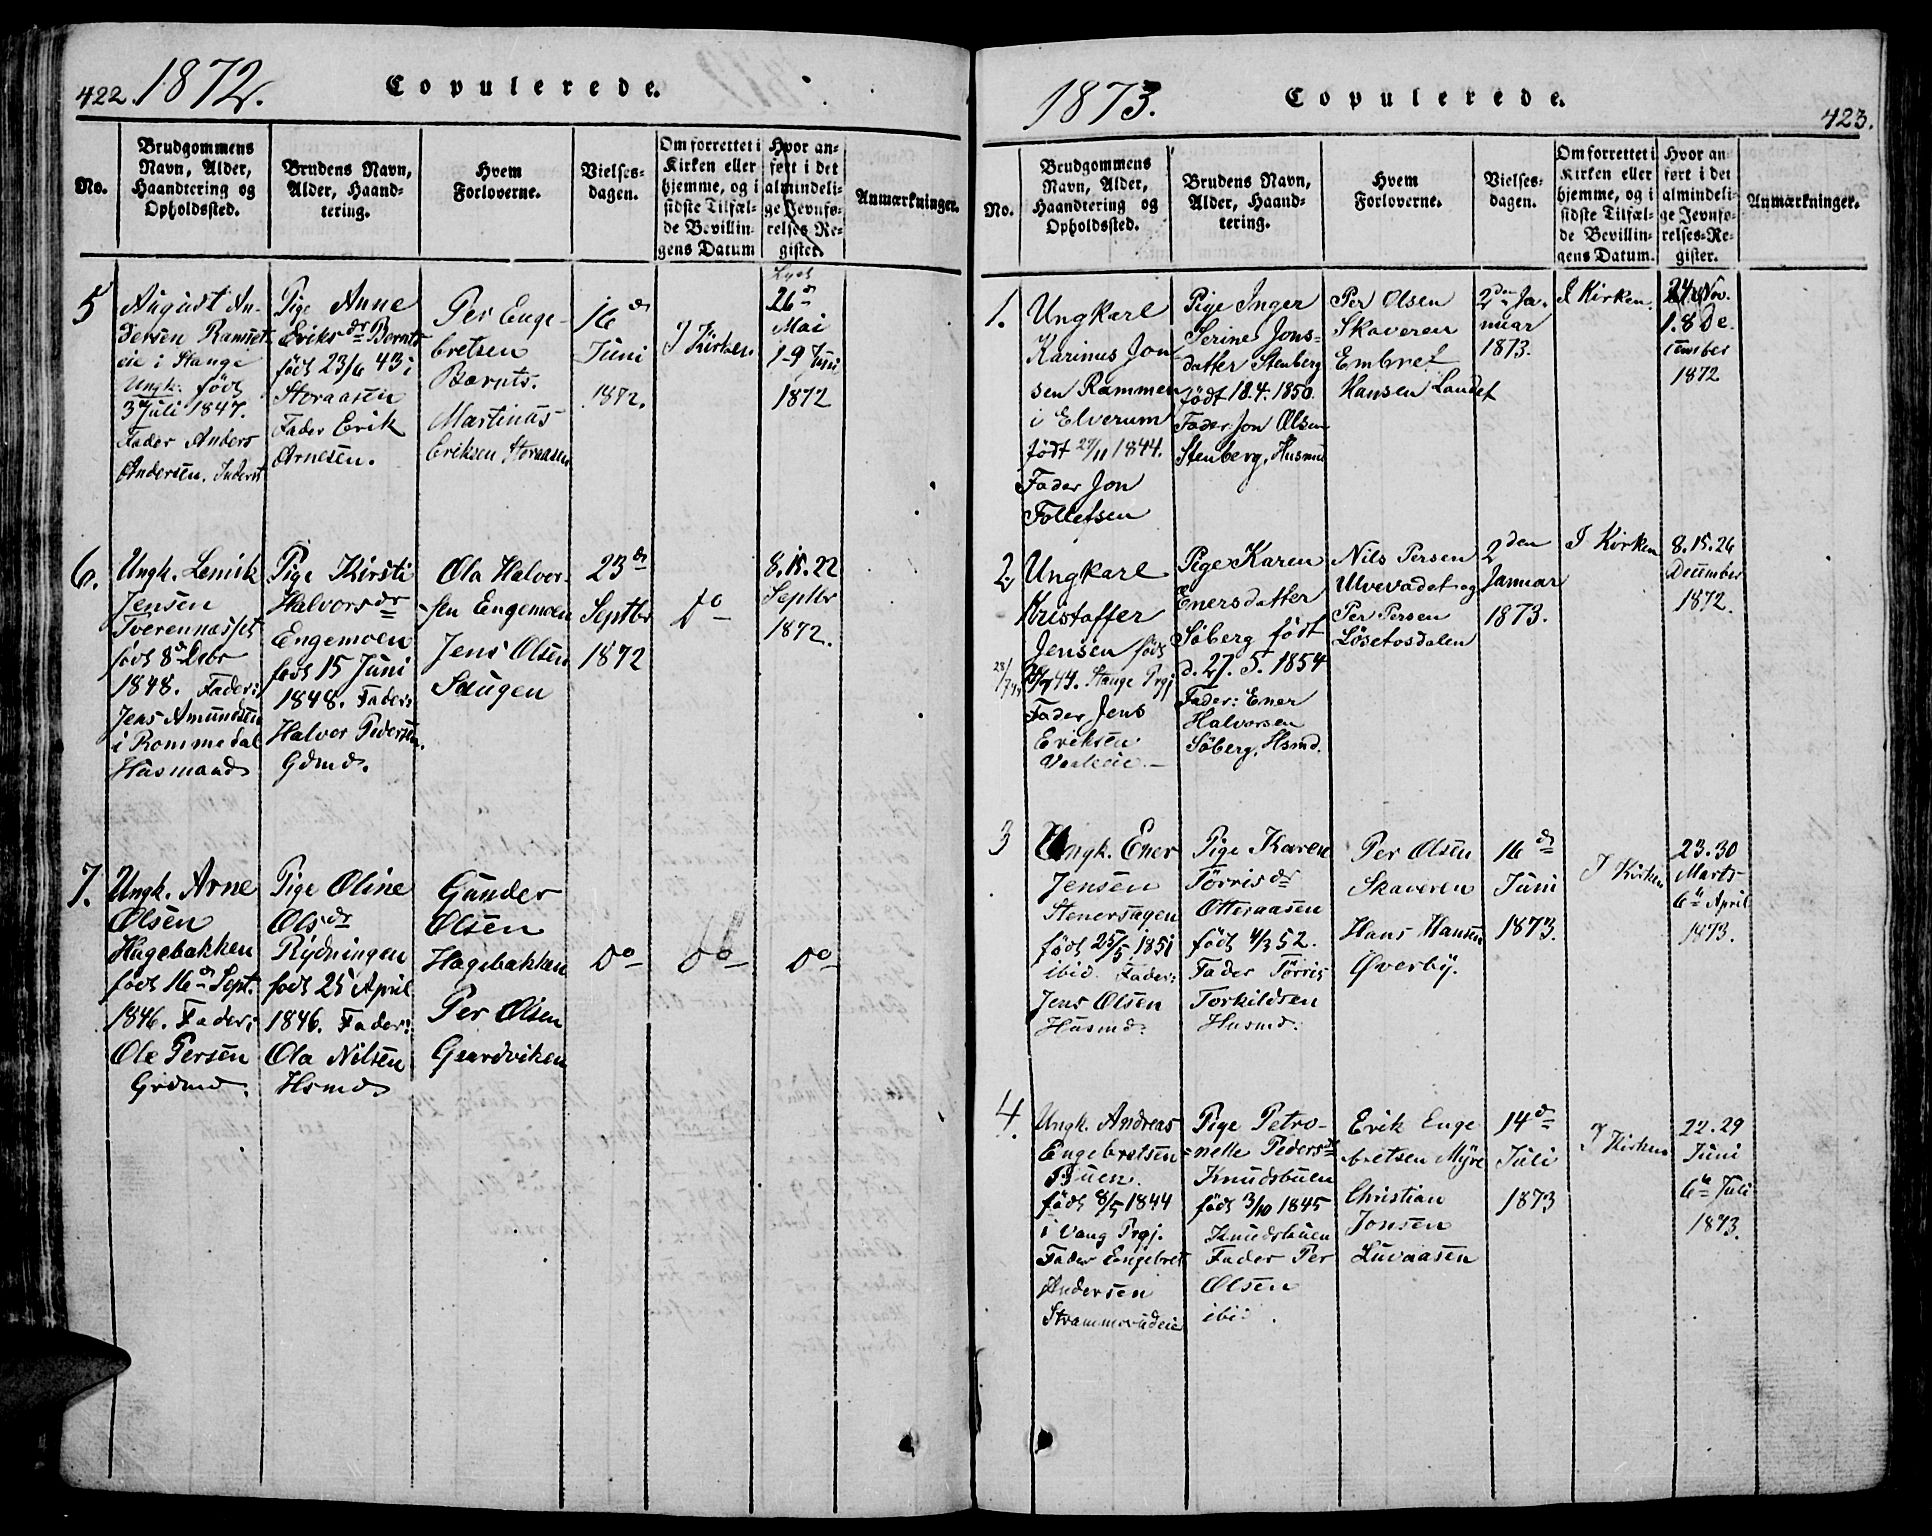 422. 1872. Copulerede.
No.
Brudgommens
Navn, Alder,
Haandtering og
Opholdssted.
Brudens Navn,
Alder, Haand-
tering.
Hvem
Forloverne.
Vielses-
dagen.
Om forrettet i
Kirken eller
hjemme, og i
sidste Tilfæl-
de Bevillin-
gens Datum
Hvor an-
ført i det
almindeli-
ge Jevnfø-
relses-Re-
gister.
Anmærkninger.
5
August An-
dersen Ramset
eie i Stange
Ungk. født
3 Juli 1847.
Fader Anders
Andersen.
Pige Anne
Eriksdr Bernts
født 23/6 43 i
Storaasen
Fader Erik
Arnesen.
Per Enge-
bretsen
Bærnts.
Martinus
Eriksen Storaasen
16de
Juni
1872.
I Kirken
Lyst
26de
Mai
1-9 Juni
1872
6.
Ungk. Lemik
Jensen
Tverennæsset
født 8de Debr
1848. Fader:
Jens Amundsen
i Rommedal
Husmand
Pige Kirsti
Halvorsdr
Engemoen
født 15 Juni
1848. Fader:
Halvor Pedersen.
Gdmd.
Ola Halvor-
sen Engemoen
Jens Olsen
Saugen
23de
Septbr
1872
Do
8.15.22
Septbr
1872.
7.
Ungk. Arne
Olsen
Hagebakken
født 16de Sept.
1846. Fader:
Ole Persen
Grdmd.
Pige Oline
Olsdr
Rydningen
født 25 April
1846. Fader:
Ola Nilsen
Hsmd
Gunder
Olsen
Hagebakken
Per Olsen
Gaardviken
Do
Do
Do
1873. Copulerede. 423.
No.
Brudgommens
Navn, Alder,
Haandtering og
Opholdssted.
Brudens Navn,
Alder, Haand-
tering.
Hvem
Forloverne.
Vielses-
dagen.
Om forrettet i
Kirken eller
hjemme, og i
sidste Tilfæl-
de Bevillin-
gens Datum.
Hvor an-
ført i det
almindeli-
ge Jevnfø-
relses-Re-
gister.
Anmærkninger.
1.
Ungkarl
Karinus Jon-
sen Rammen
i Elverum
født 27/11 1844.
Fader Jon
Tollefsen
Pige Inger
Serine Jons-
datter Stenberg
født 18.4.1850.
Fader Jon Olsen
Stenberg, Husmd
Per Olsen
Skaveren
Embret
Hansen Landet
2den Ja-
nuar
1873.
I Kirken.
24 Nov.
1.8 De-
cember
1872
2.
Ungkarl
Kristoffer
Jensen født
44. Stange Prgj
Fader Jens
Eriksen
Pige Karen
Enersdatter
Söberg født
d. 27. 5. 1854
Fader: Ener
Halvorsen
Söberg, Hsmd.
Nils Persen
Ulvevadet og
Per Persen
Lösetosdalen
2den
Januar
1873.
I Kirken
8.15.26
December
1872.
3
Ungk. Ener
Jensen
Stenersagen
født 25/5 1851
ibid. Fader:
Jens Olsen
Husmd.
Pige Karen
Törrisdr
Otteraasen
født 4/3 52.
Fader Törris
Torkildsen
Husmd.
Per Olsen
Skaveren
Hans Hansen
Överby.
16de
Juni
1873.
I Kirken
23.30
Marts
6te April
1873.
4.
Ungk. Andreas
Engebretsen
Buen.
født 8/5 1844
i Vang Prgj.
Fader Engebret
Andersen
Strammerudeie
Pige Petro-
nelle Pedersdr
Knudsbuen
født 3/10 1845
Knudsbuen
Fader Per
Olsen
ibid.
Erik Enge
bretsen Myre
Christian
Jonsen
Luvaasen
14de
Juli
1873
I Kirken
22.29
Juni
6te Juli
1873.